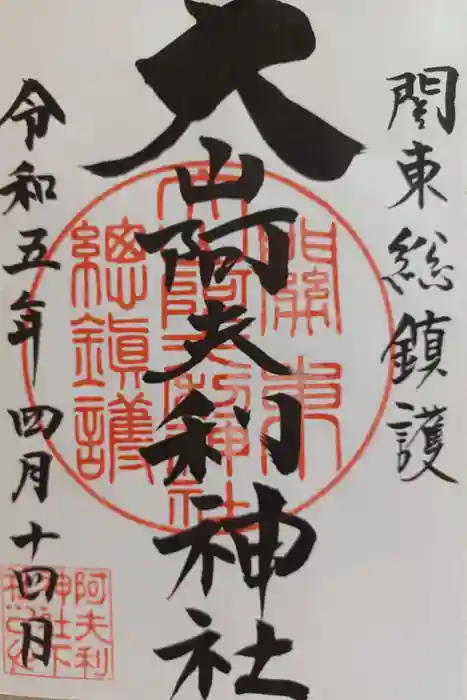 関東総鎮護
大山阿夫利神社
令和五年四月十四日
關東
大山阿夫利神社
總鎮護
阿夫利
神社下